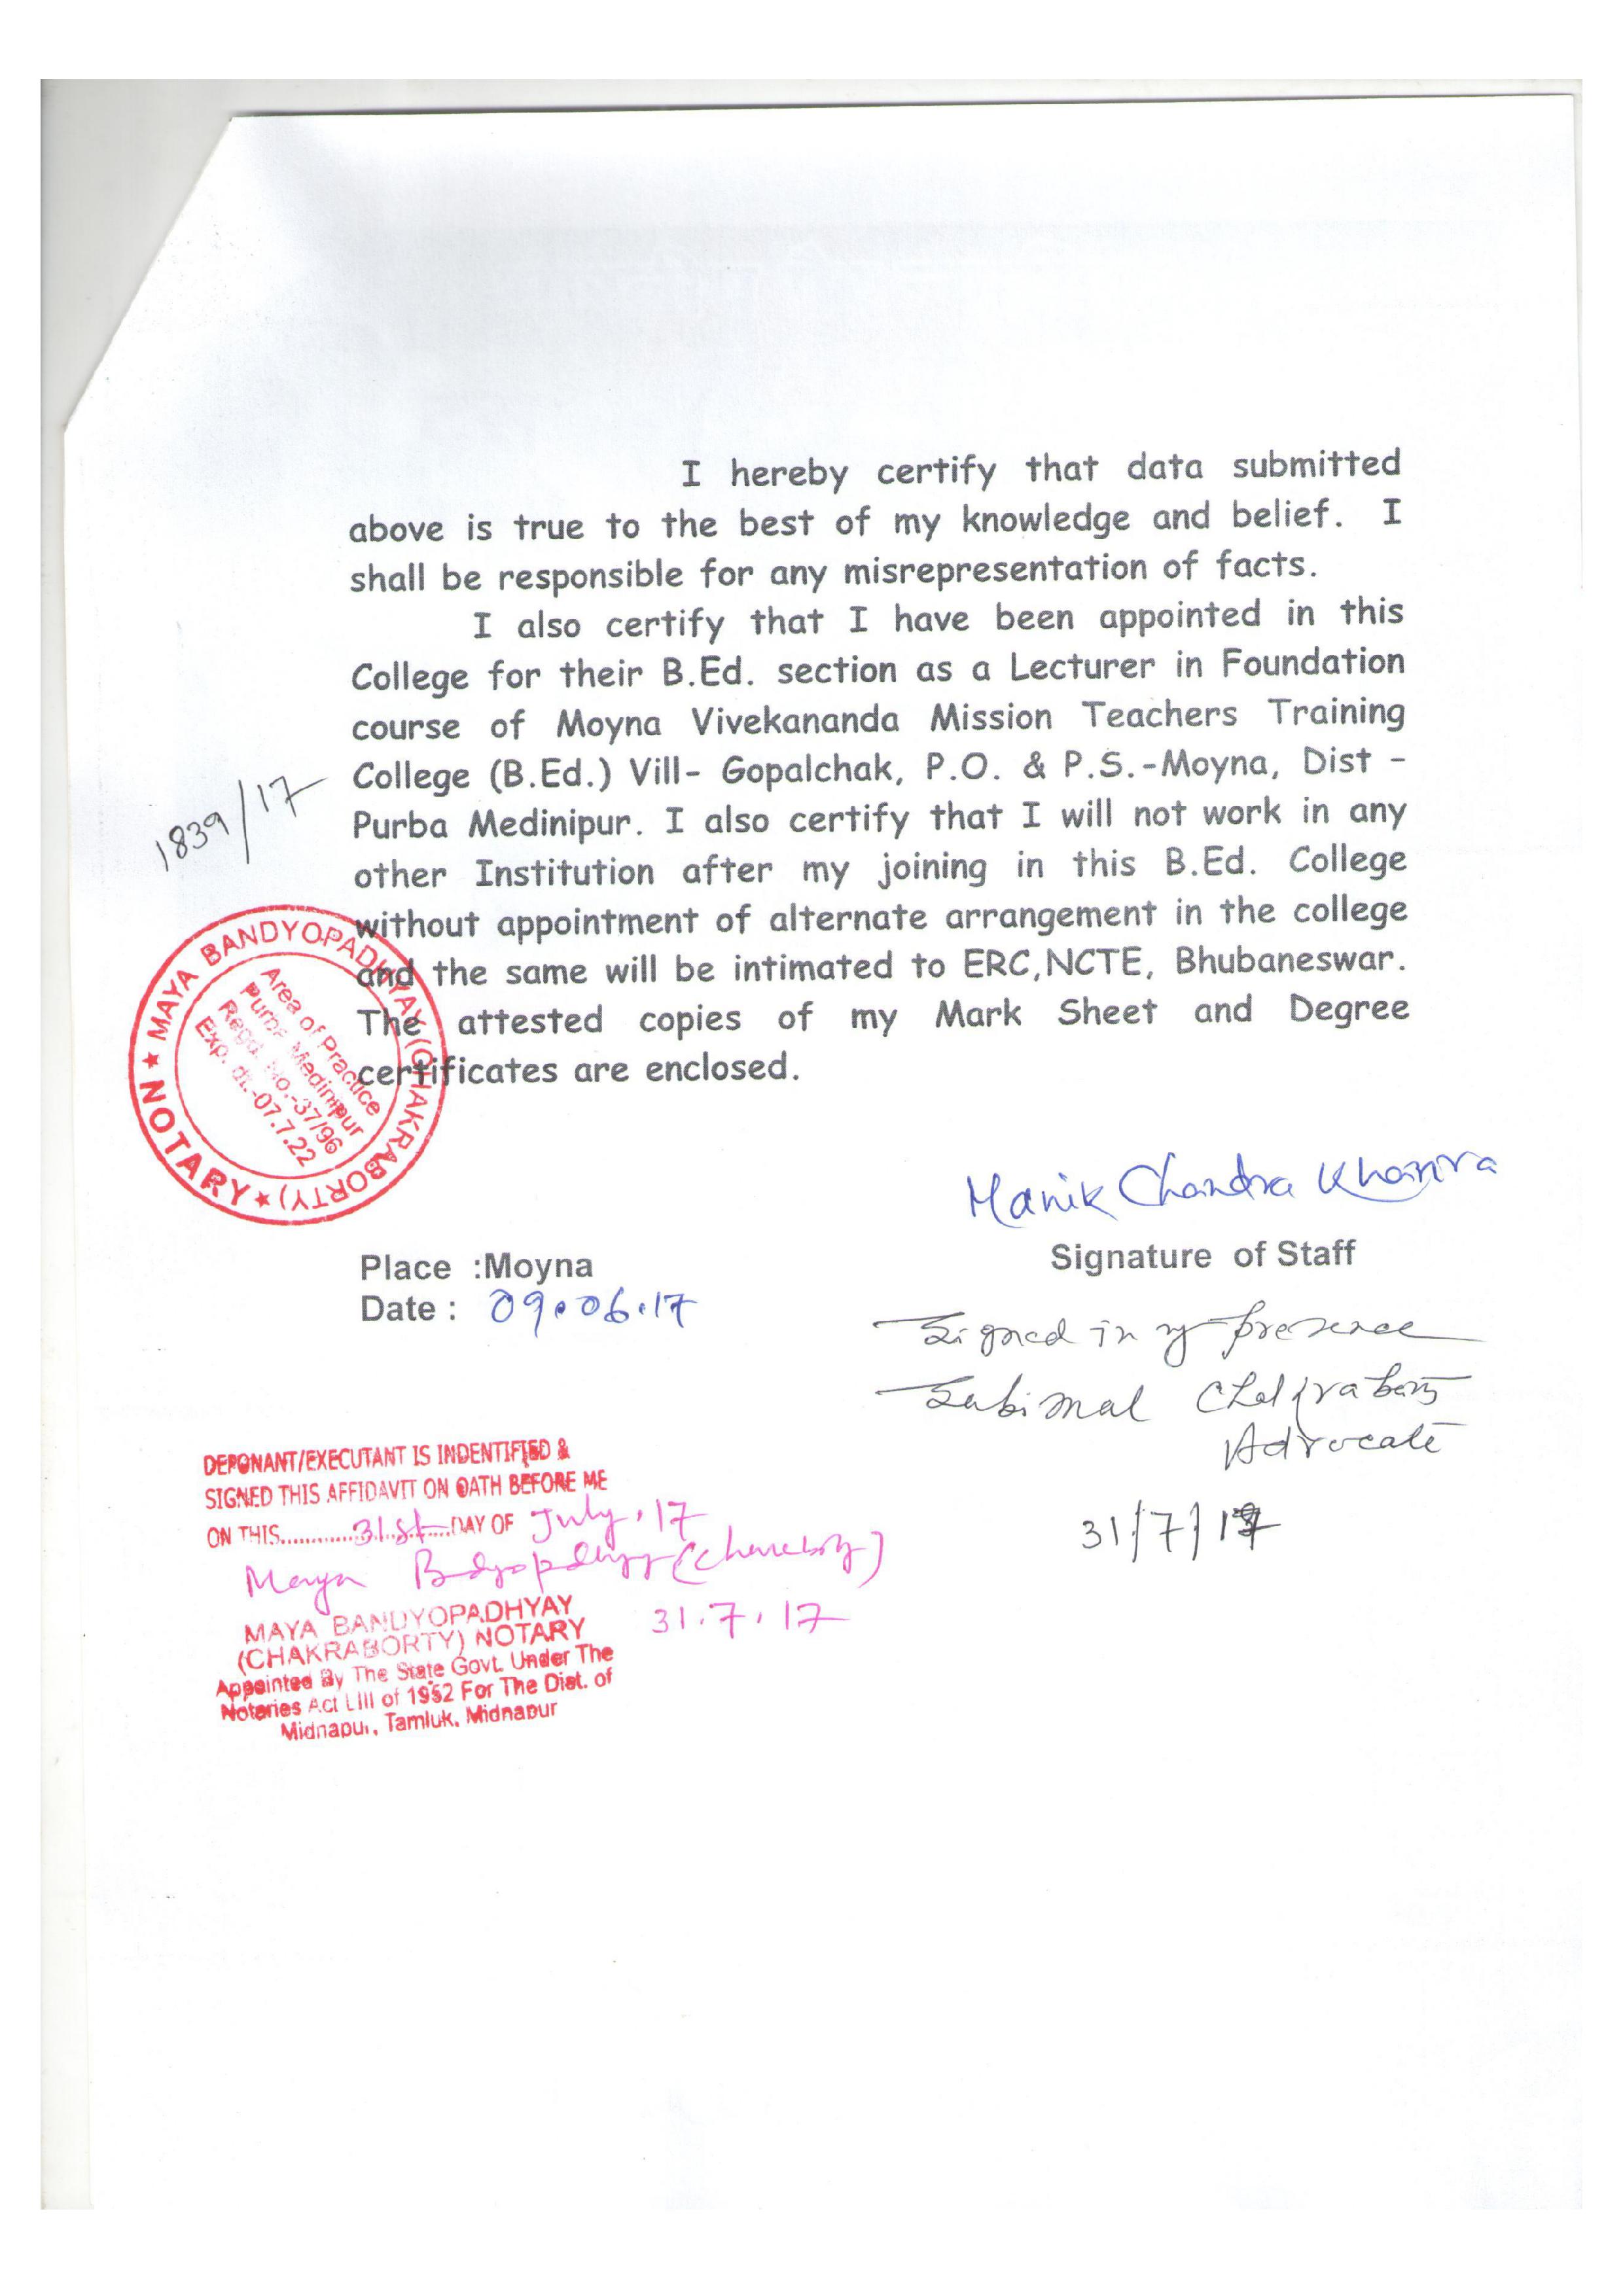 I hereby certify that data submitted
above is true to the best of my knowledge and belief. I
shall be responsible for any misrepresentation of facts.
I also certify that I have been appointed in this
College for their B.Ed. section as a Lecturer in Foundation
course of Moyna Vivekananda Mission Teachers Training
College (B.Ed.) Vill- Gopalchak, P.O. & P.S.-Moyna, Dist -
Purba Medinipur. I also certify that I will not work in any
other Institution after my joining in this B.Ed. College
without appointment of alternate arrangement in the college
and the same will be intimated to ERC,NCTE, Bhubaneswar.
The attested copies of my Mark Sheet and Degree
certificates are enclosed.
1839/17
MAYA BANDYOPADHYAY (CHAKRABORTY) ★ NOTARY ★
Area of Practice
Purba Medinipur
Regd. No.-37/96
Exp. dt.-07.7.22
Manik Chandra Khanra
Signature of Staff
Place :Moyna
Date : 09.06.17
Signed in my presence
Subimal Chakraborty
Advocate
31/7/17
DEPONANT/EXECUTANT IS INDENTIFIED &
SIGNED THIS AFFIDAVIT ON OATH BEFORE ME
ON THIS............31st............DAY OF July, 17
Maya
31.7.17
MAYA BANDYOPADHYAY
(CHAKRABORTY) NOTARY
Appointed By The State Govt. Under The
Notaries Act LIII of 1952 For The Dist. of
Midnapur, Tamluk, Midnapur